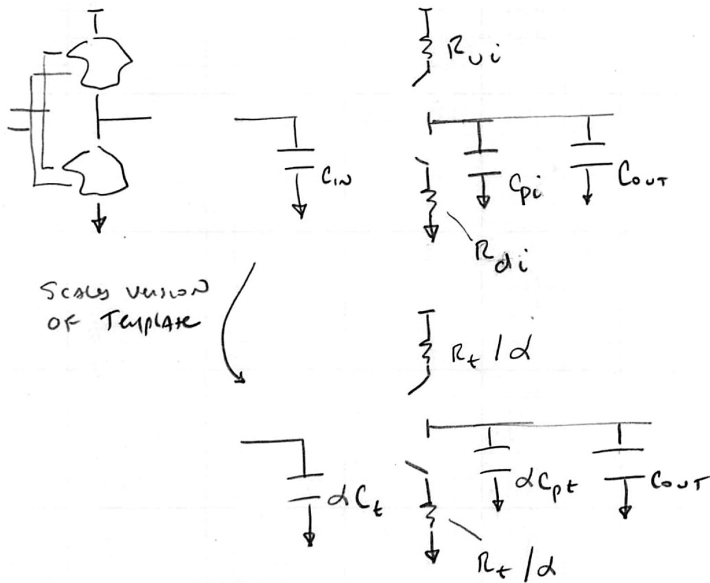 R_ui
C_IN
C_pi
C_OUT
R_di
SCALED VERSION
OF TEMPLATE
R_t / α
α C_t
α C_pt
C_OUT
R_t / α